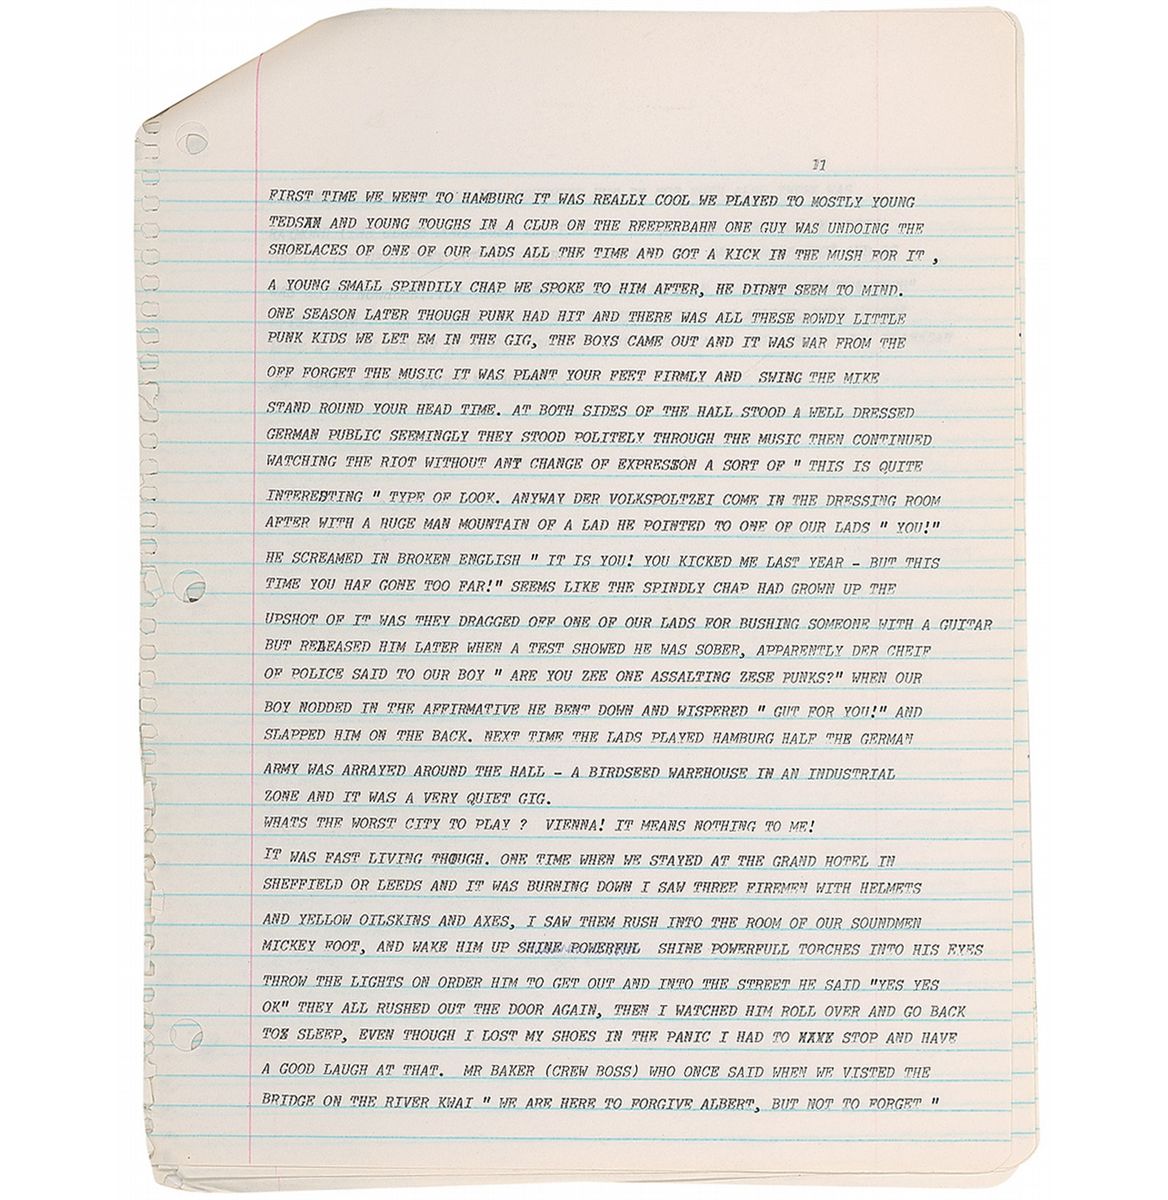 11
FIRST TIME WE WENT TO HAMBURG IT WAS REALLY COOL WE PLAYED TO MOSTLY YOUNG
TEDSAN AND YOUNG TOUGHS IN A CLUB ON THE REEPERBAHN ONE GUY WAS UNDOING THE
SHOELACES OF ONE OF OUR LADS ALL THE TIME AND GOT A KICK IN THE MUSH FOR IT ,
A YOUNG SMALL SPINDILY CHAP WE SPOKE TO HIM AFTER, HE DIDNT SEEM TO MIND.
ONE SEASON LATER THOUGH PUNK HAD HIT AND THERE WAS ALL THESE ROWDY LITTLE
PUNK KIDS WE LET EM IN THE GIG, THE BOYS CAME OUT AND IT WAS WAR FROM THE
OFF FORGET THE MUSIC IT WAS PLANT YOUR FEET FIRMLY AND SWING THE MIKE
STAND ROUND YOUR HEAD TIME. AT BOTH SIDES OF THE HALL STOOD A WELL DRESSED
GERMAN PUBLIC SEEMINGLY THEY STOOD POLITELY THROUGH THE MUSIC THEN CONTINUED
WATCHING THE RIOT WITHOUT ANT CHANGE OF EXPRESSON A SORT OF " THIS IS QUITE
INTERESTING " TYPE OF LOOK. ANYWAY DER VOLKSPOLTZEI COME IN THE DRESSING ROOM
AFTER WITH A HUGE MAN MOUNTAIN OF A LAD HE POINTED TO ONE OF OUR LADS " YOU!"
HE SCREAMED IN BROKEN ENGLISH " IT IS YOU! YOU KICKED ME LAST YEAR - BUT THIS
TIME YOU HAF GONE TOO FAR!" SEEMS LIKE THE SPINDLY CHAP HAD GROWN UP THE
UPSHOT OF IT WAS THEY DRAGGED OFF ONE OF OUR LADS FOR BUSHING SOMEONE WITH A GUITAR
BUT RELEASED HIM LATER WHEN A TEST SHOWED HE WAS SOBER, APPARENTLY DER CHEIF
OF POLICE SAID TO OUR BOY " ARE YOU ZEE ONE ASSALTING ZESE PUNKS?" WHEN OUR
BOY NODDED IN THE AFFIRMATIVE HE BENT DOWN AND WISPERED " GUT FOR YOU!" AND
SLAPPED HIM ON THE BACK. NEXT TIME THE LADS PLAYED HAMBURG HALF THE GERMAN
ARMY WAS ARRAYED AROUND THE HALL - A BIRDSEED WAREHOUSE IN AN INDUSTRIAL
ZONE AND IT WAS A VERY QUIET GIG.
WHATS THE WORST CITY TO PLAY ? VIENNA! IT MEANS NOTHING TO ME!
IT WAS FAST LIVING THOUGH. ONE TIME WHEN WE STAYED AT THE GRAND HOTEL IN
SHEFFIELD OR LEEDS AND IT WAS BURNING DOWN I SAW THREE FIREMEN WITH HELMETS
AND YELLOW OILSKINS AND AXES, I SAW THEM RUSH INTO THE ROOM OF OUR SOUNDMEN
MICKEY FOOT, AND WAKE HIM UP SHINE POWERFUL SHINE POWERFULL TORCHES INTO HIS EYES
THROW THE LIGHTS ON ORDER HIM TO GET OUT AND INTO THE STREET HE SAID "YES YES
OK" THEY ALL RUSHED OUT THE DOOR AGAIN, THEN I WATCHED HIM ROLL OVER AND GO BACK
TO SLEEP, EVEN THOUGH I LOST MY SHOES IN THE PANIC I HAD TO STOP AND HAVE
A GOOD LAUGH AT THAT. MR BAKER (CREW BOSS) WHO ONCE SAID WHEN WE VISTED THE
BRIDGE ON THE RIVER KWAI " WE ARE HERE TO FORGIVE ALBERT, BUT NOT TO FORGET "